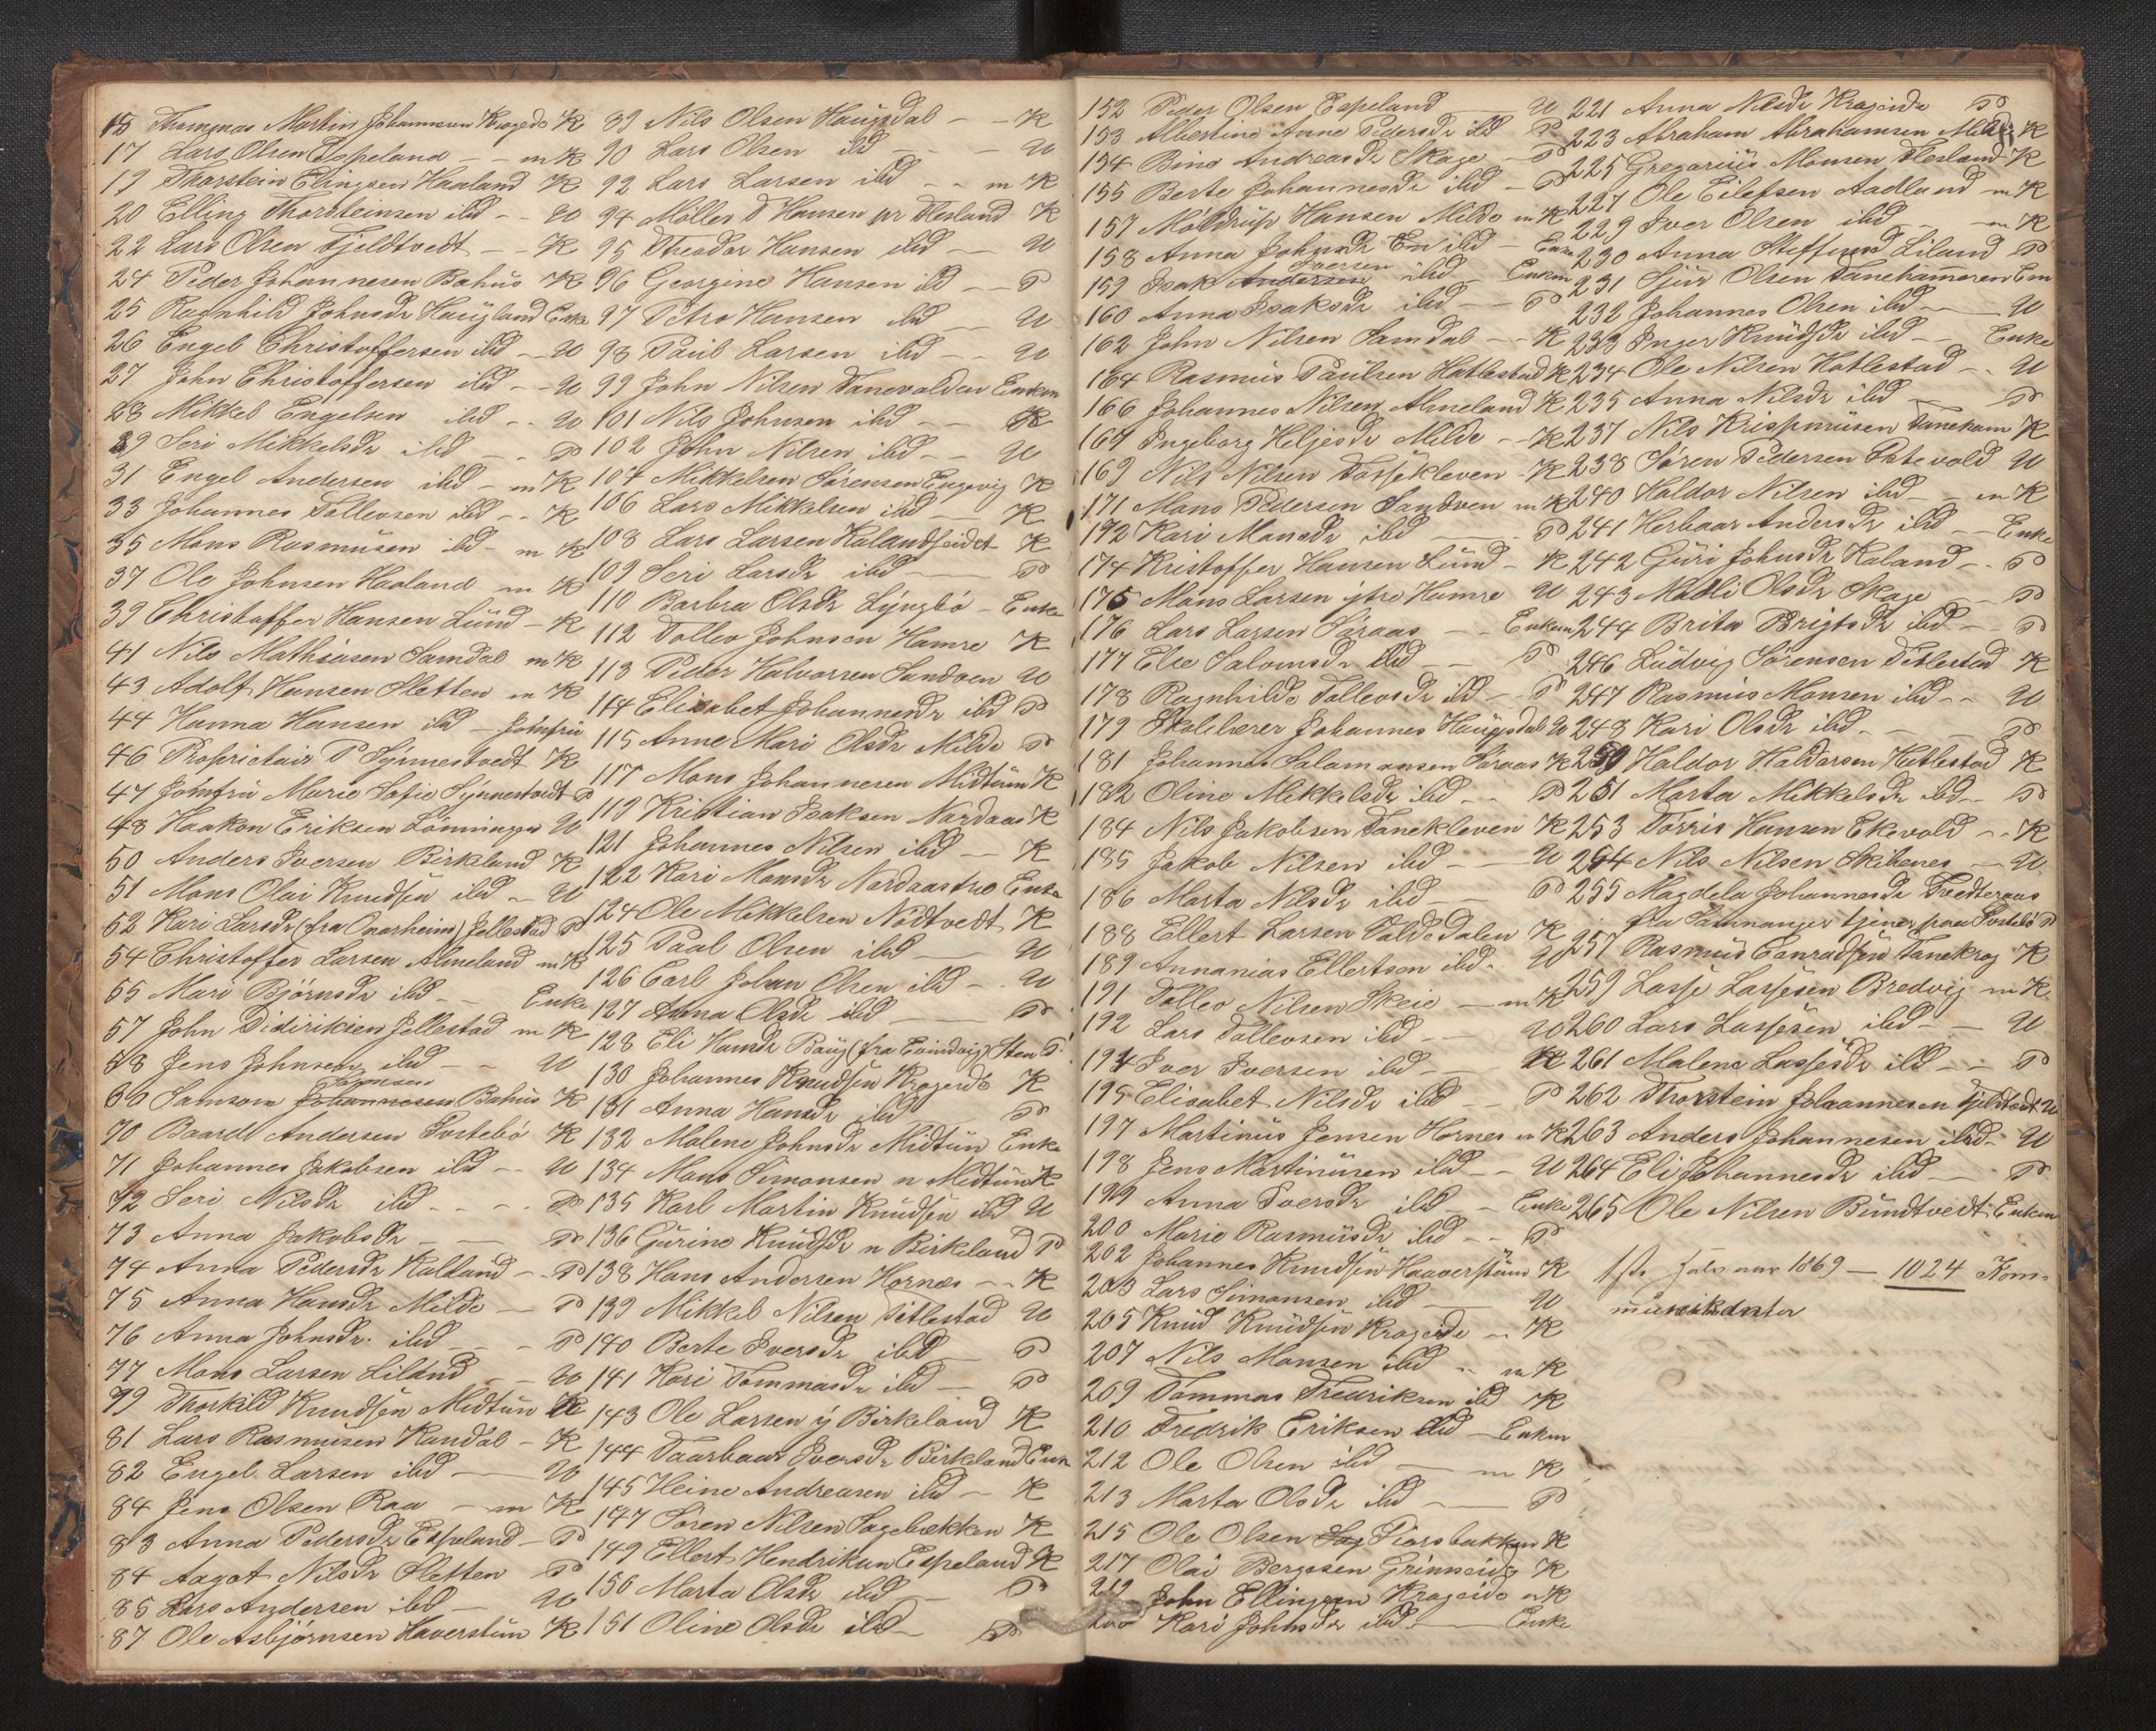 15 Thommas Martin Johannesen Krageide K
17 Lars Olsen Espeland - - m K
19 Thorstein Elingsen Haaland K
20 Elling Thorsteinsen ibid - - U
22 Lars Olsen Tjeldtvedt - - K
24 Peder Johannesen Bahus K
25 Ragnhild Johnsdr Haugland Enke
26 Engel Christoffersen ibid - U
27 John Christoffersen ibid - - U
28 Mikkel Engelsen ibid - - U
29 Seri Mikkelsdr ibid - - P
31 Engel Andersen ibid - m K
33 Johannes Tollevsen ibid - - K
35 Mons Rasmusen ibd - m K
37 Ole Johnsen Haaland m K
39 Christoffer Hansen Lund - K
41 Nils Mathiasen Samdal m K
43 Adolf Hansen Sletten m K
44 Hanna Hansen ibd - Jomfru
46 Proprietair P Synnestvedt K
47 Jomfru Marie Sofie Synnestvedt P
48 Haakon Eriksen Lønningen U
50 Anders Iversen Birkeland K
51 Mons Olai Knudsen ibd - U
52 Kari Larsdr (fra Onarheim) Jellestad P
54 Christoffer Larsen Almeland m K
55 Mari Bjørnsdr ibd - - Enke
57 John Didiriksen Jellestad m K
58 Jens Johnsen ibd - - U
60 Samson Johannesen Bahus K
70 Baard Andersen Tostebø K
71 Johannes Jakobsen ibd - - U
72 Seri Nilsdr ibd - - - P
73 Anna Jakobsdr - - P
74 Anna Pedersdr Kalland - - P
75 Anna Hansdr Milde - P
76 Anna Johnsdr ibd - - P
77 Mons Larsen Liland - - U
79 Thorkild Knudsen Midtun K
81 Lars Rasmusen Kandal - K
82 Engel Larsen ibd - U
84 Jens Olsen Raa - m K
83 Anna Pedersdr Espeland - P
84 Aagot Nilsdr Sletten P
85 Lars Andersen ibd - U
87 Ole Asbjørnsen Haverstun K
89 Nils Olsen Haugsdal - - K
90 Lars Olsen ibd - - - U
92 Lars Larsen ibd - - m K
94 Møller D Hansen pr Flesland K
95 Theodor Hansen ibd - U
96 Georgine Hansen ibd - - P
97 Petro Hansen ibd - - U
98 Paul Larsen ibd - - U
99 John Nilsen Fanevolden Enkem
101 Nils Johnsen ibid - - K
102 John Nilsen ibd - - U
104 Mikkelsen Sørensen Engevig K
106 Lars Mikkelsen ibd - K
108 Lars Larsen Kalandseidet K
109 Seri Larsdr ibd - P
110 Barbra Olsdr Lyngbø - Enke
112 Tollev Johnsen Hamre K
113 Peder Halvorsen Sandven U
114 Elisabet Johannesdr ibd P
115 Anne Mari Olsdr Milde P
117 Mons Johannesen Midtun K
119 Kristian Isaksen Nordaas K
121 Johannes Nilsen ibd - K
122 Kari Monsdr Nordaastræ Enke
124 Ole Mikkelsen Nødtvedt K
125 Paul Olsen ibd - U
126 Carl Johan Olsen ibd - - U
127 Anna Olsdr ibd - P
128 Eli Hansdr Bøy (fra Evindvig) Sten P
130 Johannes Knudsen Krageide K
131 Anna Hansdr ibd P
132 Malene Johnsdr Midtun Enke
134 Mons Simonsen n Midtun K
135 Karl Martin Knudsen ibd U
136 Gurine Knudsdr n Birkeland P
138 Hans Andersen Hornæs - - K
139 Mikkel Nilsen Titlestad U
140 Berte Iversdr ibd P
141 Kari Tommasdr ibd - P
143 Ole Larsen y Birkeland K
144 Taarbaar Iversdr Birkeland Enk
145 Heine Andreasen ibd - K
147 Søren Nilsen Sagebækken K
149 Ellert Hendriksen Espeland K
150 Marta Olsdr ibd - P
151 Oline Olsdr ibd - P
152 Peder Olsen Espeland - U
153 Albertine Anne Pedersdr ibd P
154 Bina Andreasdr Skage - P
155 Berte Johannesdr ibid - P
157 Moldrup Hansen Milde m K
158 Anna Johnsdr En ibd - Enke
Iversen
159 Isak Andersen ibid - Enkem
160 Anna Isaksdr ibd - - P
162 John Nilsen Samdal - - K
164 Rasmus Paulsen Hatlestad K
166 Johannes Nilsen Almeland K
167 Ingeborg Heljesdr Milde - - K
169 Nils Nilsen Fossekleven - K
171 Mons Pedersen Sandven m K
172 Kari Monsdr ibd - P
174 Kristoffer Hansen Lund - K
175 Mons Larsen ytre Hamre U
176 Lars Larsen Søraas - - Enkem
177 Else Salomsdr ibd - - P
178 Ragnhilde Tollevsdr ibd - P
179 Skolelærer Johannes Haugsdal U
181 Johannes Salamonsen Søraas K
182 Oline Mikkelsdr ibd - - P
184 Nils Jakobsen Fanekleven K
185 Jakob Nilsen ibd - - U
186 Marta Nilsdr ibd - P
188 Ellert Larsen Dalde Dalen K
189 Annanias Ellertsen ibd - U
191 Tollev Nilsen Skeie - m K
192 Lars Tollevsen ibd - - U
194 Iver Iversen ibd - K
195 Elisabet Nilsdr ibd - - P
197 Martinus Jensen Hornes m K
198 Jens Martinusen ibd - - U
199 Anna Iversdr ibd - - Enke
200 Marie Rasmusdr ibd - - P
202 Johannes Knudsen Haaverstuun K
203 Lars Simonsen ibd - U
205 Knud Knudsen Krageide - K
207 Nils Monsen ibd - - m K
209 Tommas Fredriksen ibd K
210 Fredrik Eriksen ibd - Enkem
212 Ole Olsen ibd - m K
213 Marta Olsdr ibd - - P
215 Ole Olsen Tiorsbakken K
217 Olai Bergesen Grimseid K
219 John Ellingsen Krageide m K
200 Kari Johnsdr ibd - Enke
221 Anna Nilsdr Krageide P
223 Abraham Abrahamsen Milde K
225 Gregorius Monsen Flesland K
227 Ole Eilefsen Aadland m K
229 Iver Olsen ibd - m K
230 Anna Steffensd Liland P
231 Sjur Olsen Fanehammeren Em
232 Johannes Olsen ibd - - U
233 Inger Knudsdr ibd - - Enke
234 Ole Nilsen Hatlestad - - U
235 Anna Nilsdr ibd - P
237 Nils Krispinusen Faneham K
238 Søren Pedersen Ektevold U
240 Haldor Nilsen ibd - - m K
241 Herbaar Andersdr ibd - Enke
242 Guri Johnsdr Kaland - - P
243 Madli Olsdr Skage - - P
244 Brita Brigtsdr ibd - - P
246 Ludvig Sørensen Titlestad K
247 Rasmus Monsen ibd - - U
248 Kari Olsdr ibd - - P
250 Haldor Haldorsen Hetlestad K
251 Marta Mikkelsdr ibd - P
253 Torris Hansen Ekevold - - K
254 Nils Nilsen Skibenes - U
255 Magdela Johannesdr Tvedteraas
fra Samnanger tjener paa Tostebø P
257 Rasmus Conradsen Fanekrog K
259 Lasse Lassesen Bredvig m K
260 Lars Lassesen ibd - - U
261 Malene Lassesdr ibd - - P
262 Thorstein Johannesen Tjeldtvedt U
263 Anders Johannesen ibd - U
264 Eli Johannesdr ibd - P
265 Ole Nilsen Bundtvedt Enkem
1ste halv aar 1869 - 1024 Kom-
munikanter